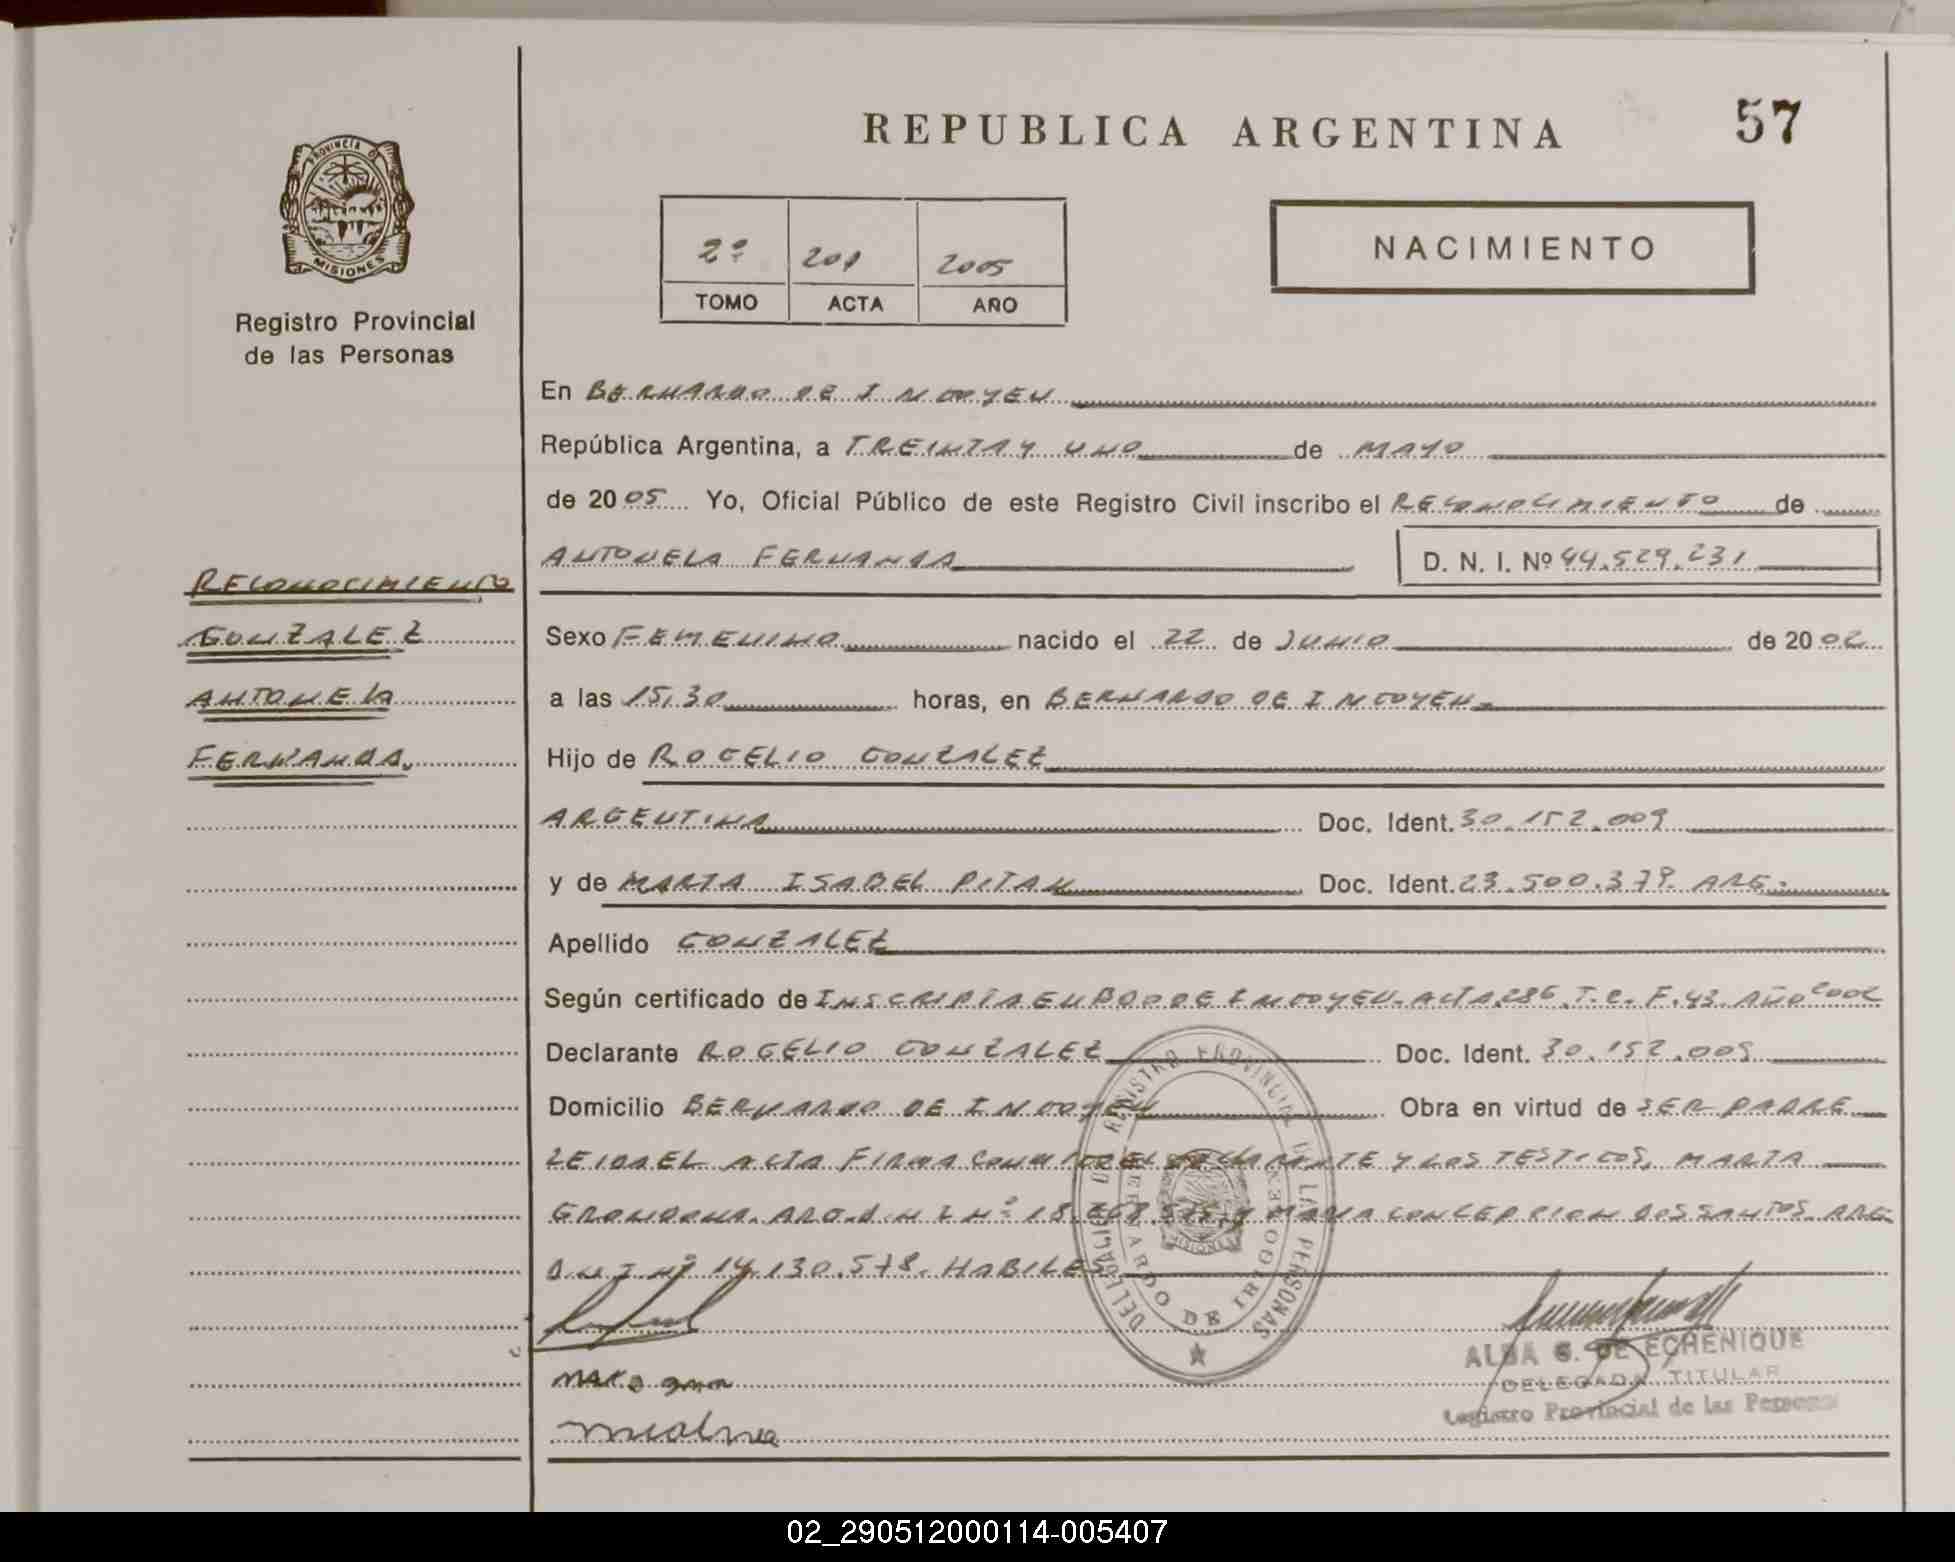 REPUBLICA ARGENTINA
57
PROVINCIA DE
MISIONES
Registro Provincial
de las Personas
2º 201 2005
TOMO ACTA AÑO
NACIMIENTO
En BERNARDO DE IRIGOYEN
República Argentina, a TREINTA Y UNO de MAYO
de 2005 Yo, Oficial Público de este Registro Civil inscribo el RECONOCIMIENTO de
ANTONELA FERNANDA D. N. I. Nº 44.529.231
RECONOCIMIENTO
GONZALEZ
ANTONELA
FERNANDA.
Sexo FEMENINO nacido el 22 de JUNIO de 2002
a las 15,30 horas, en BERNARDO DE IRIGOYEN.
Hijo de ROGELIO GONZALEZ
ARGENTINA Doc. Ident. 30.152.009
y de MARTA ISABEL PITAN Doc. Ident. 23.500.379. ARG.
Apellido GONZALEZ
Según certificado de INSCRIPTA EN BDO DE IRIGOYEN. ACTA 286. T. F. 43. AÑO 2002
Declarante ROGELIO GONZALEZ Doc. Ident. 30.152.009
Domicilio BERNARDO DE IRIGOYEN Obra en virtud de SER PADRE
LEIDA EL ACTA FIRMA CONMIGO EL DECLARANTE Y LOS TESTIGOS, MARTA
GRONDONA. ARG. D N I Nº 18. Y MARIA CONCEPCION DOS SANTOS. ARG.
D N I Nº 14.130.578. HABILES
DELEGACION DEL REGISTRO PROVINCIAL DE LAS PERSONAS
BERNARDO DE IRIGOYEN
MISIONES
ALBA G. DE ECHENIQUE
DELEGADA TITULAR
Registro Provincial de las Personas
02_290512000114-005407